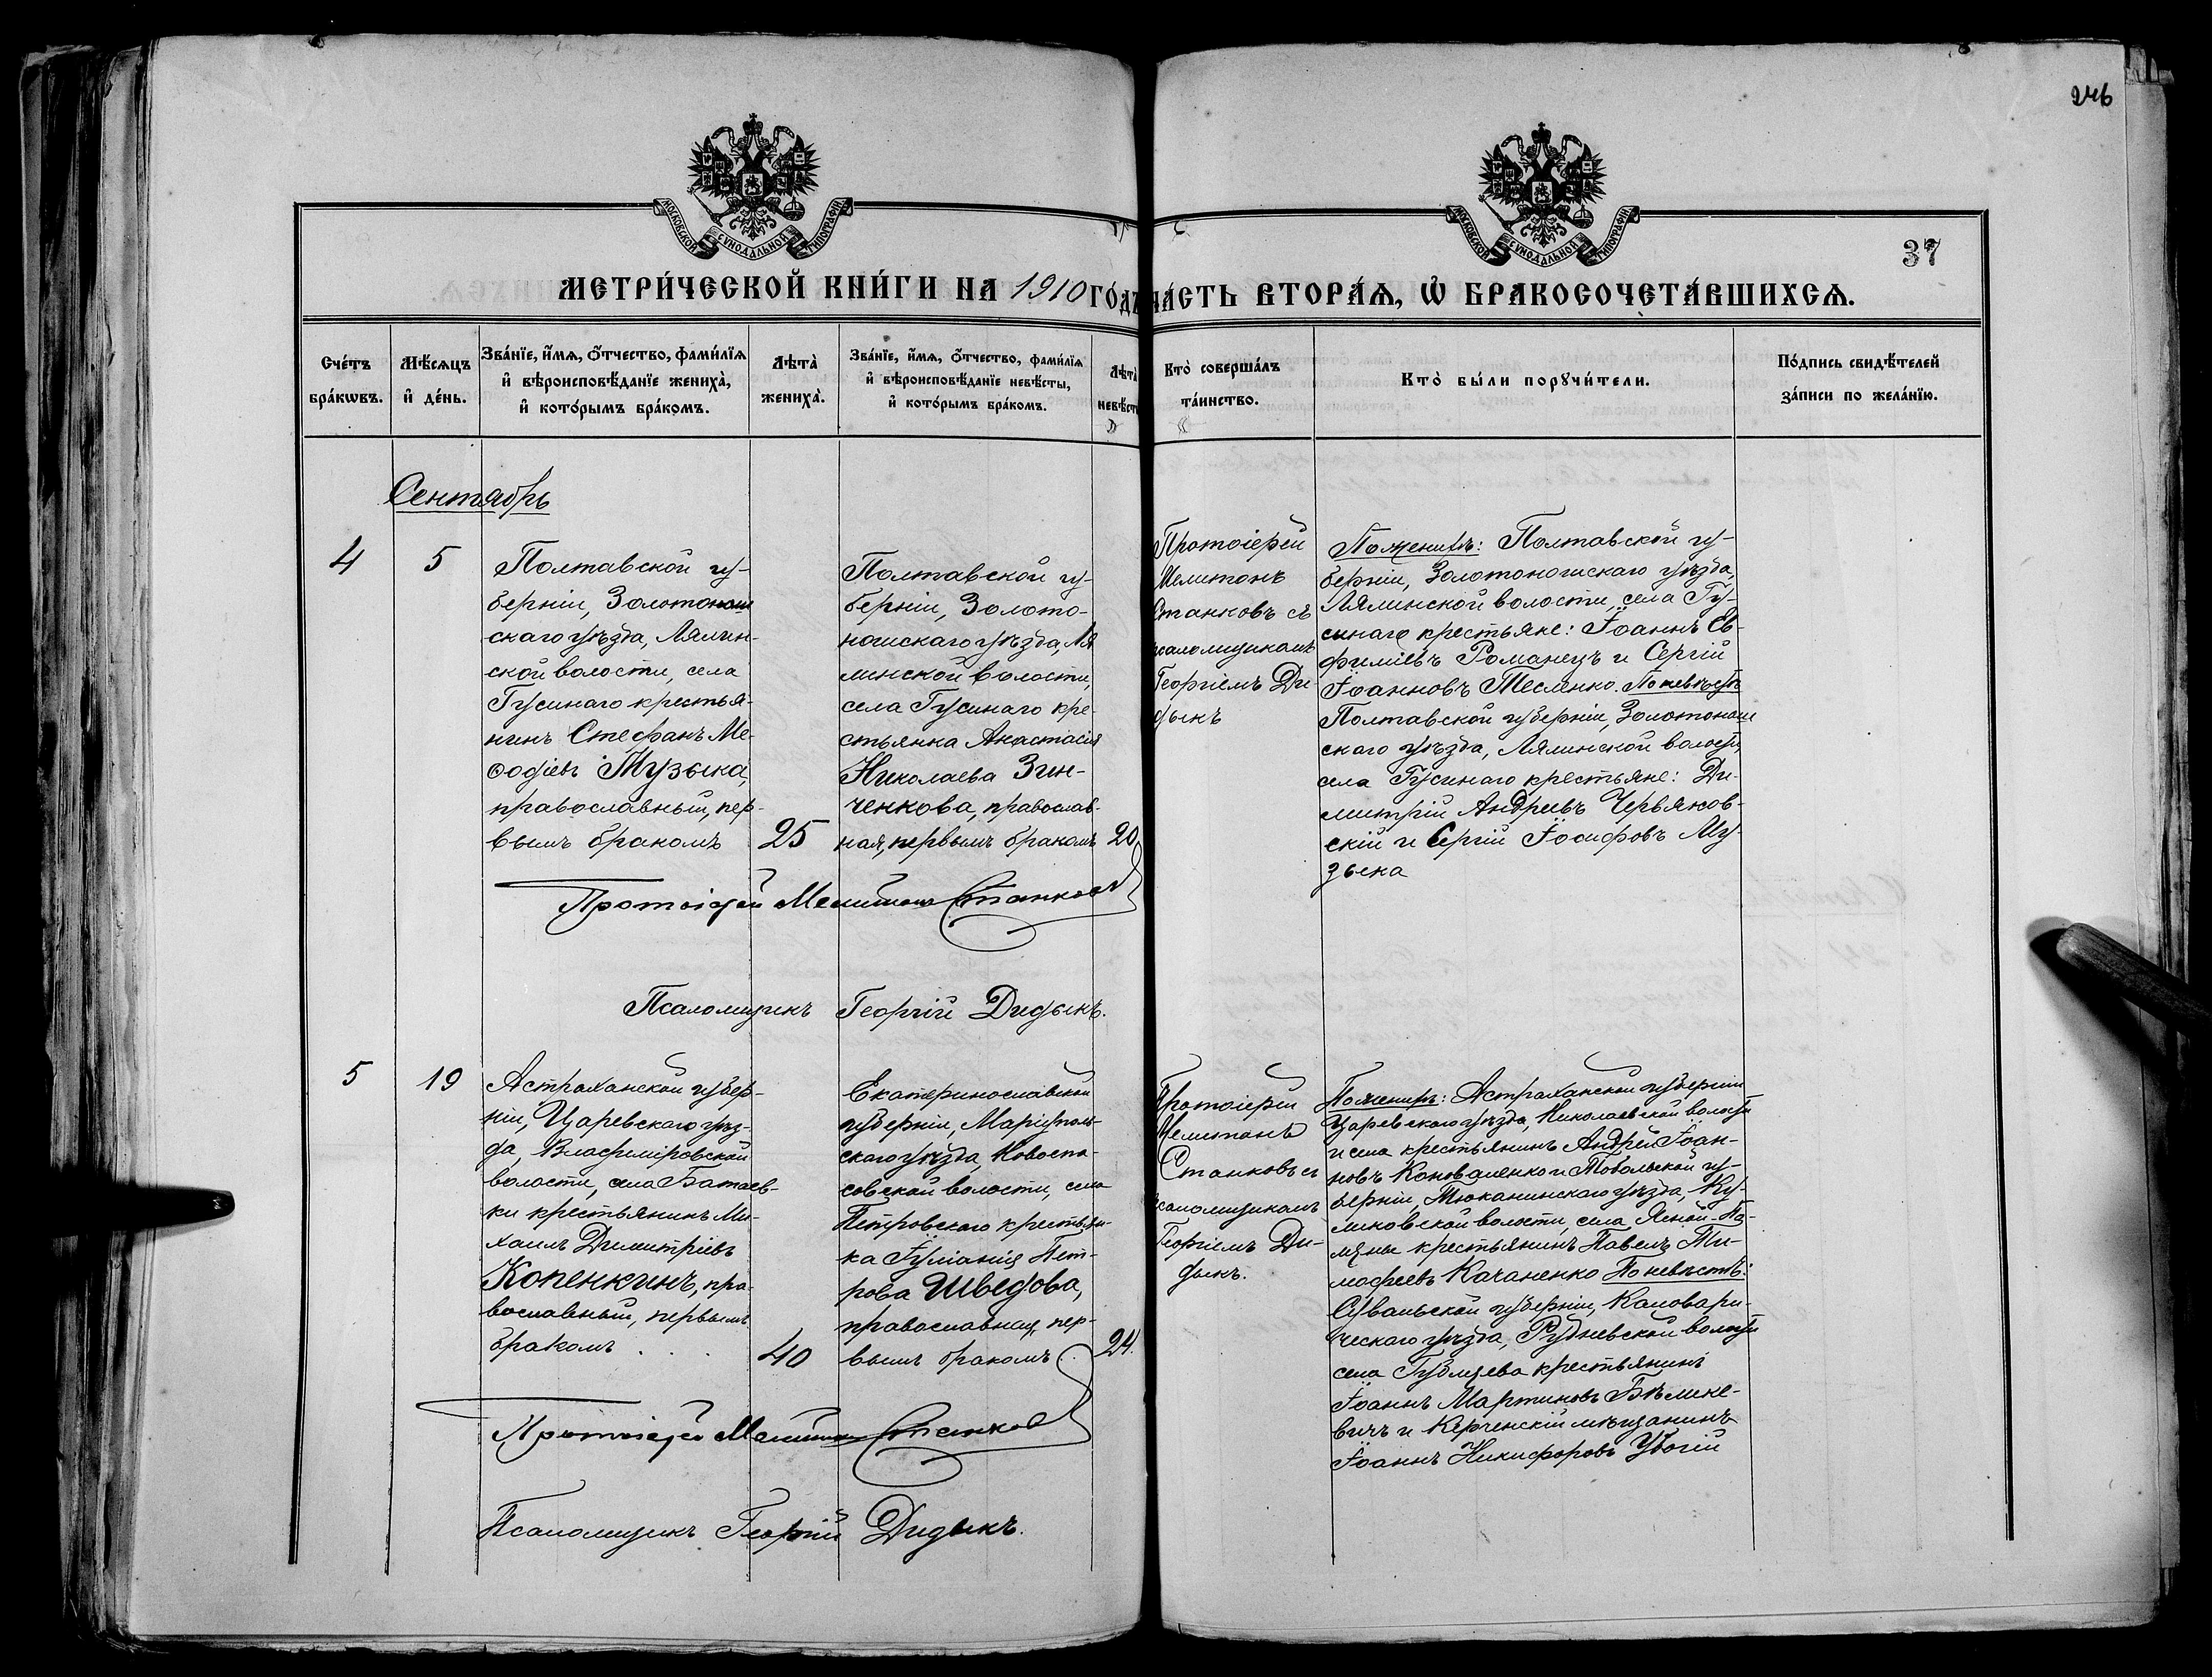 246
МОСКОВСКОЙ СѴНОДАЛЬНОЙ ТИПОГРАФІИ
МОСКОВСКОЙ СѴНОДАЛЬНОЙ ТИПОГРАФІИ
37
МЕТРИ́ЧЕСКОЙ КНИ́ГИ НА 1910 ГО́ДЪ
ЧА́СТЬ ВТОРА́Ѧ, Ѡ҆ БРАКОСОЧЕТА́ВШИХСѦ.
Сче́тъ
бра́кѡвъ.
Мѣ́сяцъ
и҆ де́нь.
Зва́нїе, и҆́мѧ, ѻ҆́тчество, фами́лїѧ
и҆ вѣроисповѣ́данїе жениха̀,
и҆ кото́рымъ бра́комъ.
Лѣта̀
жениха̀.
Зва́нїе, и҆́мѧ, ѻ҆́тчество, фами́лїѧ
и҆ вѣроисповѣ́данїе невѣ́сты,
и҆ кото́рымъ бра́комъ.
Лѣта̀
невѣ́сты
Кто̀ соверша́лъ
та́инство.
Кто̀ бы́ли порꙋчи́тели.
По́дпись свидѣ́телей
за́писи по жела́нїю.
Сентябрь
4
5
Полтавской гу-
берніи, Золотонош
скаго уѣзда, Лялин-
ской волости, села
Гусинаго крестья-
нинъ Стефанъ Ме-
ѳодіевъ Музыка,
православный, пер-
вымъ бракомъ
25
Полтавской гу-
берніи, Золото-
ношскаго уѣзда, Ля
линской волости,
села Гусинаго кре-
стьянка Анастасія
Николаева Зин-
ченкова, православ-
ная, первымъ бракомъ
20
Протоіерей
Мелитонъ
Станковъ съ
псаломщикомъ
Георгіемъ Ди-
дыкъ
По женихѣ: Полтавской гу-
берніи, Золотоношскаго уѣзда,
Лялинской волости, села Гу-
синаго крестьяне: Іоаннъ Ев-
фиміевъ Романецъ и Сергій
Іоанновъ Тесленко. По невѣстѣ
Полтавской губерніи, Золотонош
скаго уѣзда, Лялинской волости,
села Гусинаго крестьяне: Ди-
митрій Андреевъ Червяков-
скій и Сергій Іосифовъ Му-
зыка
Протоіерей Мелитонъ Станковъ
Псаломщикъ Георгій Дидыкъ.
5
19
Астраханской губер-
ніи, Царевскаго уѣз-
да, Владиміровской
волости, села Батаев-
ки крестьянинъ Ми-
хаилъ Димитріевъ
Копенкинъ, пра-
вославный, первымъ
бракомъ . . .
40
Екатеринославской
губерніи, Маріуполь-
скаго уѣзда, Новоспа-
совской волости, села
Петровскаго крестьян-
ка Іуліанія Пет-
рова Шведова,
православная, пер-
вымъ бракомъ .
24.
Протоіерей
Мелитонъ
Станковъ съ
псаломщикомъ
Георгіемъ Ди-
дыкъ.
По женихѣ: Астраханской губерніи
Царевскаго уѣзда, Николаевской волости
и села крестьянинъ Андрей Іоан-
новъ Коноваленко и Тобольской гу-
берніи, Тюкалинскаго уѣзда, Ку-
ликовской волости, села Ясной-По-
ляны крестьянинъ Павелъ Ти-
мофеевъ Качаненко По невѣстѣ:
Сувальской губерніи, Кальвари-
ческаго уѣзда, Рудневской волости
села крестьянинъ
Іоаннъ Мартиновъ Бѣлике-
вичъ и Керченскій мѣщанинъ
Іоаннъ Никифоровъ Убогій
Протоіерей Мелитонъ Станковъ
Псаломщикъ Георгій Дидыкъ.